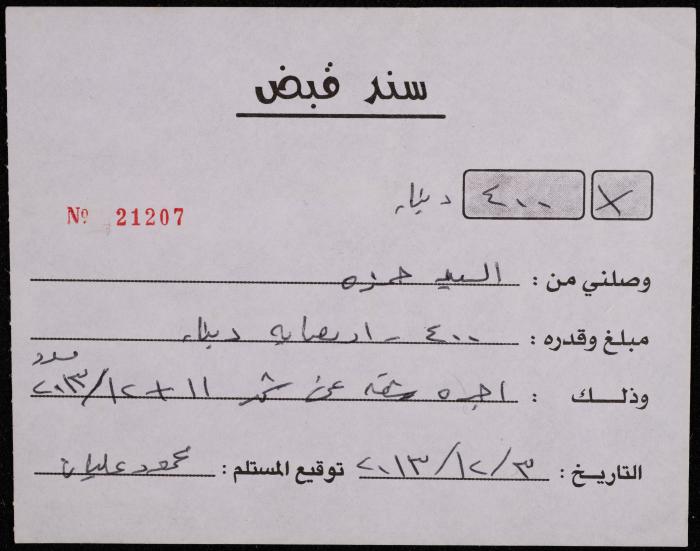 سند قبض
× ٤٠٠ دينار
Nº 21207
وصلني من : السيد حمزه
مبلغ وقدره : ٤٠٠ - اربعمايه دينار
وذلك : اجره شقه عن شهر ١١ + ١٢/٢٠١٣
التاريخ : ٣/١٢/٢٠١٣ توقيع المستلم : محمود عليان